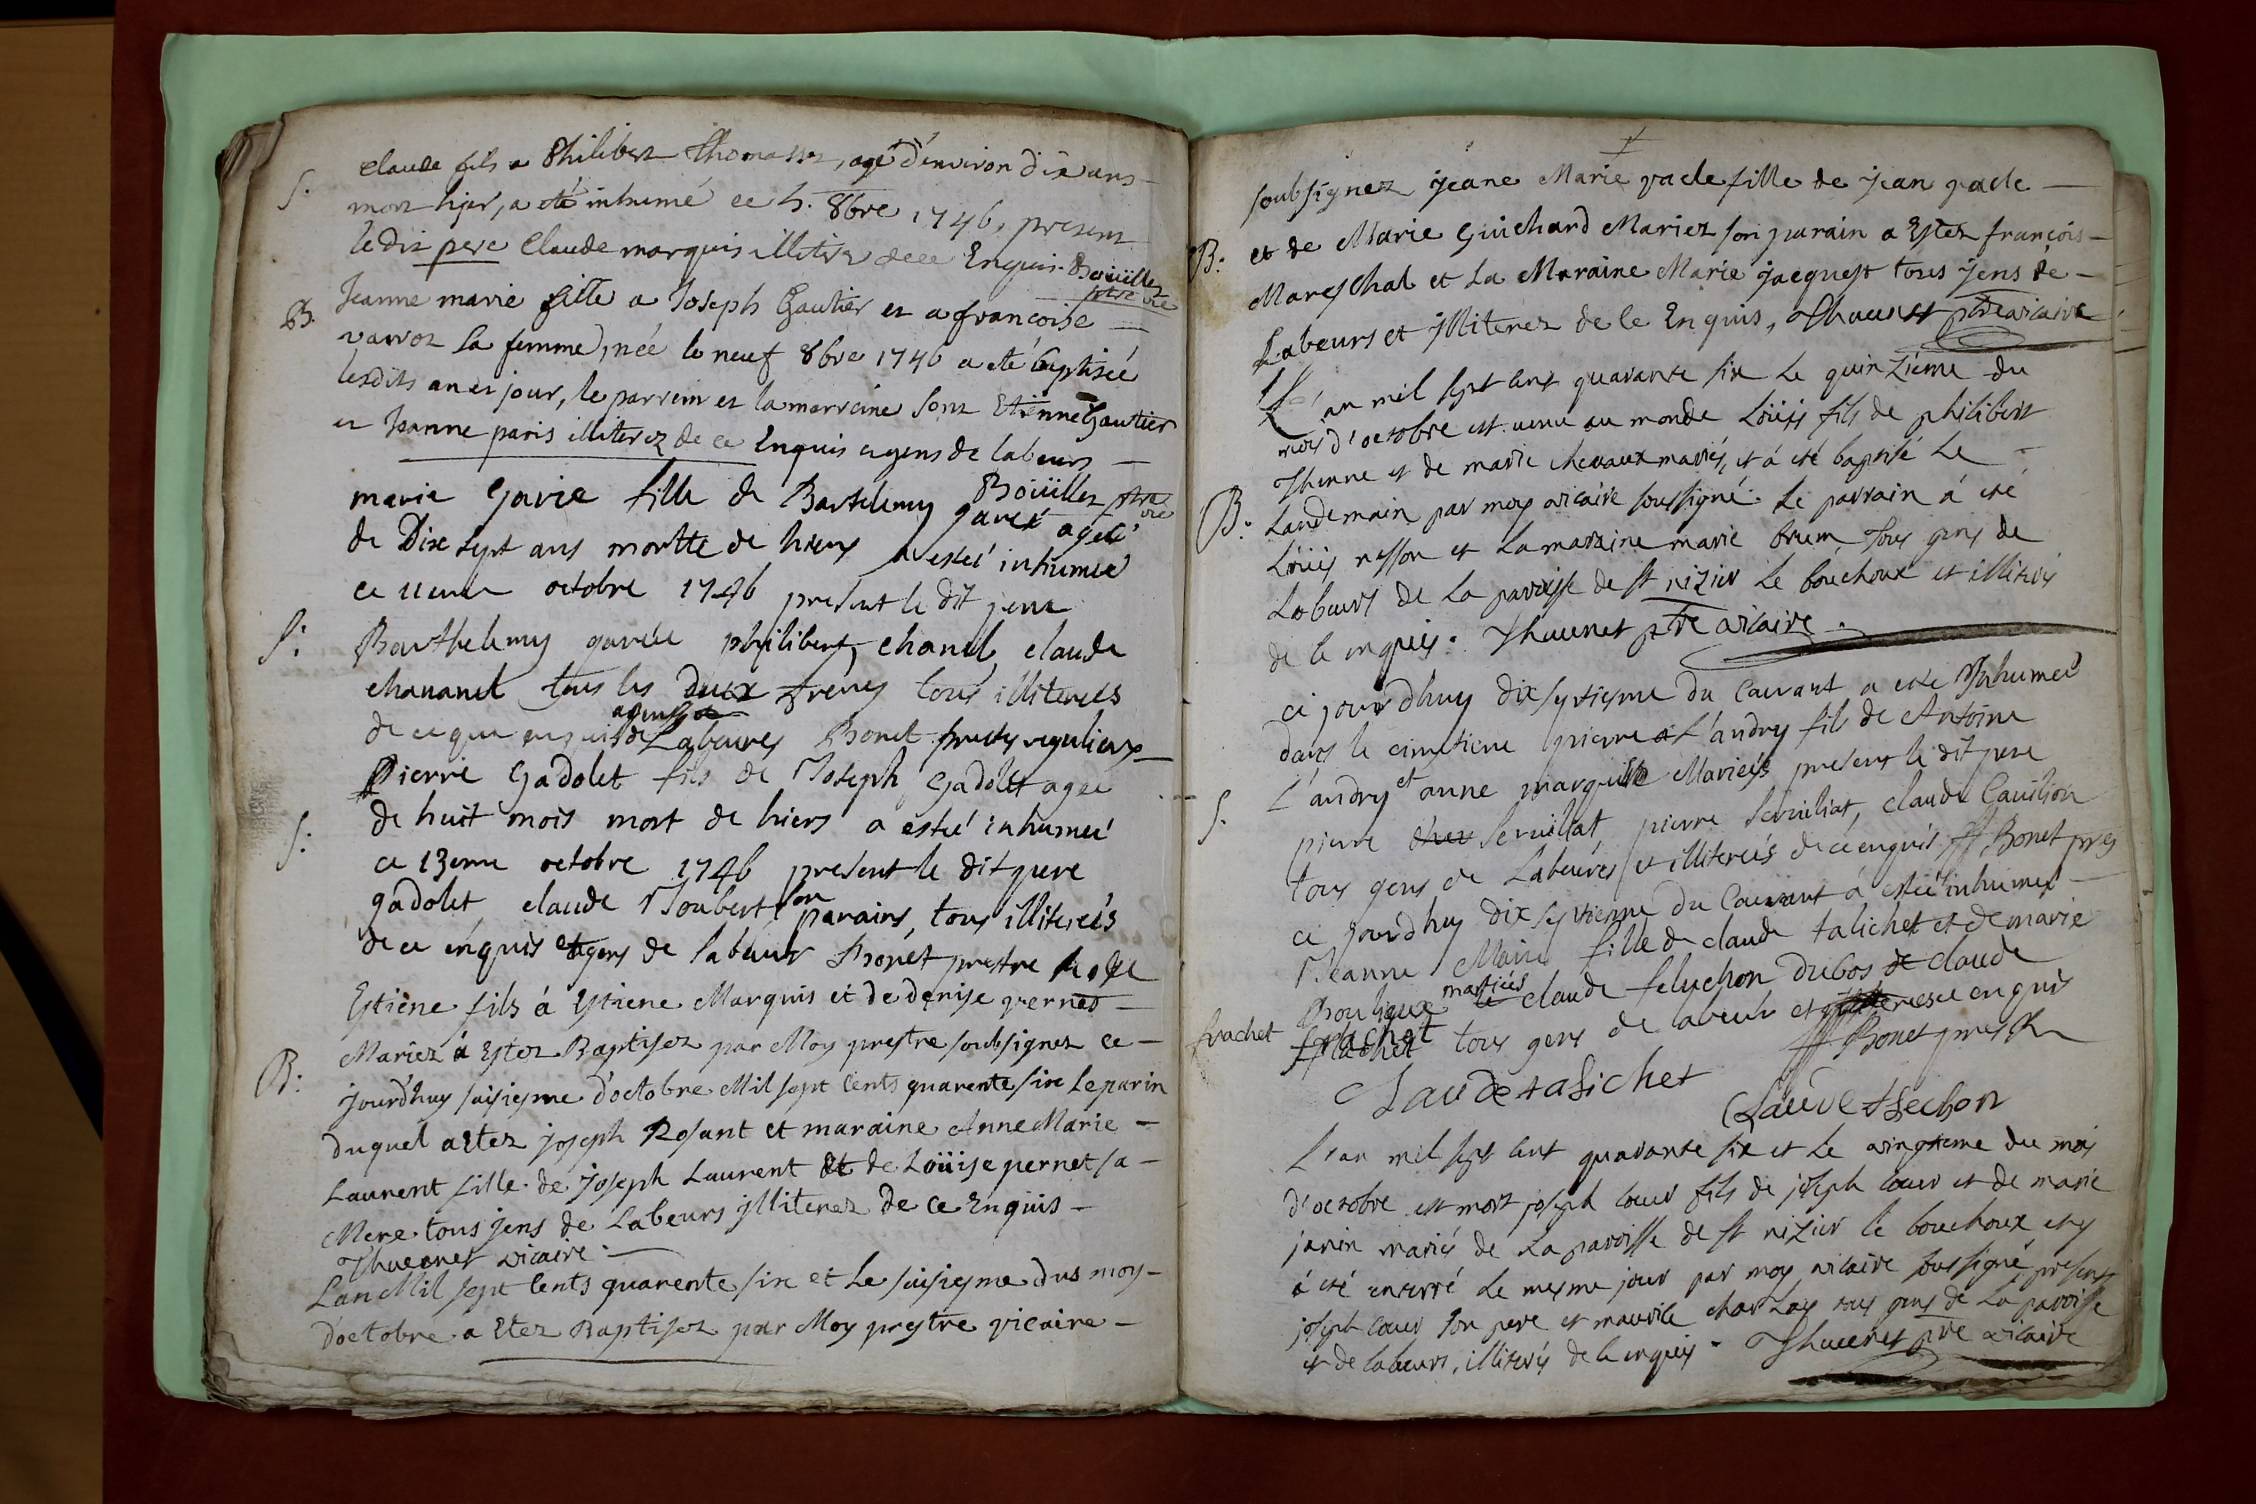 S. claude fils a Philibert Thomasset, agé d'environ dix ans
mort hjer, a eté inhumé ce 5. 8bre 1746, present
le dit pere Claude marquis illiterez de ce Enquis. Boüillet
ptre vic
B. Jeanne marie fille a Joseph Gautier et a françoise
varroz sa femme, née le neuf 8bre 1746 a eté baptiseé
lesdits an et jour, le parrein et la marreine sont Etienne Gautier
et Jeanne paris illiterez de ce Enquis et gens de labeurs
Boüillet ptre vic
marie Gavie fille de Bartelemy gavet ageé
de Dix sept ans mortte de hiers a esteé inhumeé
ce 11eme octobre 1746 present le dit pere
S: Barthelemy gavée philibert chanel, claude
chavanel tous les deux freres tous illitereés
de ce que enquis de Labeures Bonet prestre regulier
Pierre Gadolet fils de Joseph Gadolet ageé
S: de huit mois mort de hiers a esteé inhumeé
ce 13eme octobre 1746 present le dit pere
gadolet claude Joubert son parains, tous illitereés
de ce enquis et gens de labeur Bonet prestre
Estiene fils à Estiene Marquis et de denise pernet
B: Mariez á Estez Baptisez par Moy prestre soubsignez ce
jourd'huy saisiesme d'octobre Mil sept cents quarente six Le parin
duquel a Etez joseph Rosant et maraine Anne Marie
Laurent fille de joseph Laurent et de Loüise pernet sa
Mere tous jens de Labeurs jlliterez de ce Enquis
Thuernet vicaire
L'an Mil sept cents quarente six et Le saisiesme dus moy
d'octobre a Etez Baptisez par Moy prestre vicaire
soubsignez jeane Marie pacle fille de jean pacle
B: et de Marie Guichard Mariez son parain a Estez françois
Mareschal et La Maraine Marie jacquest tous jens de
Labeurs et jlliterez de ce Enquis, Thuernet ptre vicaire
L'an mil sept cent quarante six Le quinzième du
mois d'octobre est venu au monde Loüis fils de philibert
Thenne et de marie chevaux mariés, et á eté baptisé Le
B: Landemain par moy vicaire soussigné. Le parrain á eté
Loüis nesson et La marraine marie brun, Tous gens de
Labeurs de La paroisse de st nizier Le bouchoux et illiterés
de ce enquis. Thuernet ptre vicaire
ce jourdhuy dixseptiesme du Courant a esté Inhumeé
dans le cimetiere pierre L'andry fils de Antoine
S. L'andry et anne marquise Marieés present le dit pere
pierre Servillat, pierre Servilliat, claude Gavilion
tous gens de Labeures et illitereés de cé enquis ff Bonet
ce jourdhuy dixseptieme du Courant á esteé inhumeé
Jeanne Marie fille de claude talichet et de marie
Boulique mariés claude feluchon dubos de claude
frachet frachet tous gens de labeur et enquis
ff Bonet
Claude talichet
Claude
L'an mil sept cent quarante six et Le vingtieme du mois
d'octobre est mort joseph cour fils de joseph cour et de marie
janin mariés de La paroisse de st nizier le bouchoux, et y
á eté enterré Le mesme jour par moy vicaire soussigné, present
joseph cour son pere et maurice charlay tous gens de La paroisse
et de labeurs, illiterés de ce enquis. Thuernet ptre vicaire